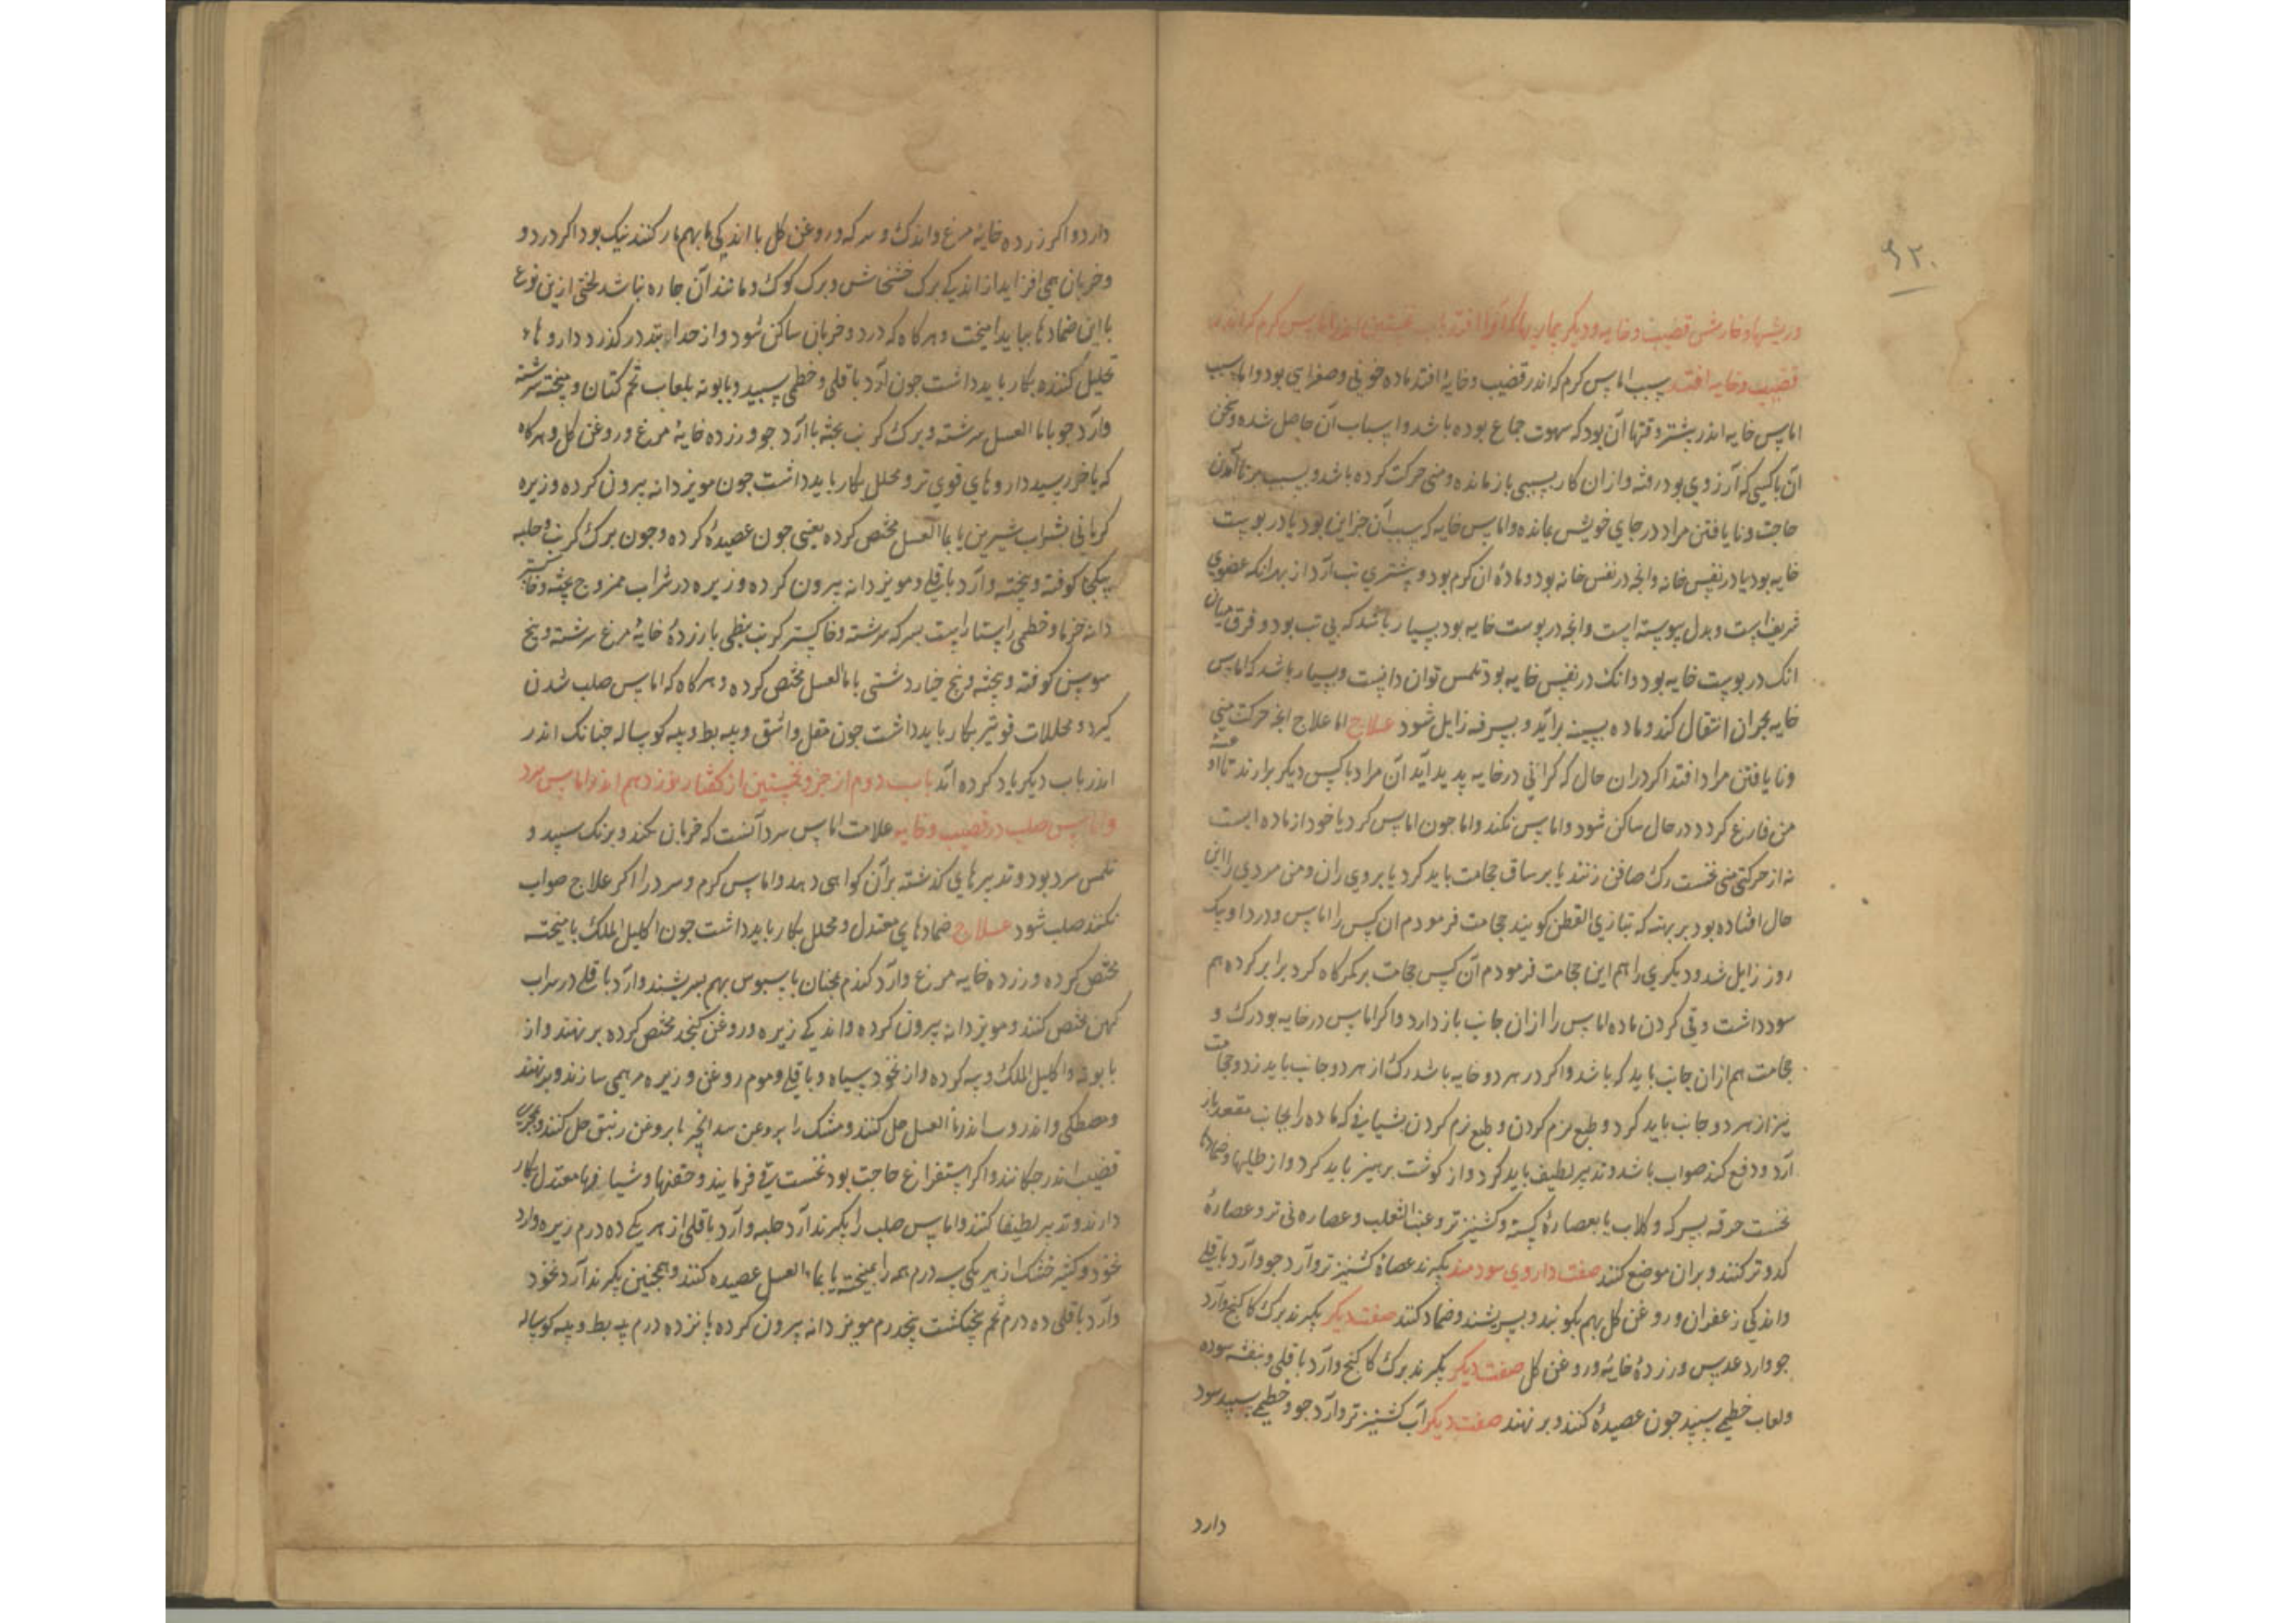 ۹۲۰
وریشها و خارش قضیب و خایه و دیکر بیماریها که آنرا افتد باب نخستین اندر اماس کرم که اندر
قضیب و خایه افتد سبب اماس کرم که اندر قضیب و خایه افتد ماده خونی و صفرایی بود و اما سبب
اماس خایه اندر بیشتر وقتها آن بود که شهوت جماع بوده باشد و اسباب آن حاصل شده و تن
آن باکسی که آرزوی بود رفته و ازان کار بسببی باز مانده و منی حرکت کرده باشد و بسبب برنا آمدن
حاجت و نا یافتن مراد در جای خویش بمانده و اماس خایه که سبب آن جز این بود یا در پوست
خایه بود یا در نفس خایه و انچه در نفس خایه بود و ماده آن کرم بود و بیشتری تب آرد از بهر انکه عضوی
شریفست و بدل پیوسته است و انچه در پوست خایه بود بسیار باشد که بی تب بود و فرق میان
انک در پوست خایه بود و انک در نفس خایه بود بلمس توان دانست و بسیار باشد که اماس
خایه بحران انتقال کند و ماده بسینه برآید و بسرفه زایل شود علاج اما علاج انچه حرکت منی
و نا یافتن مراد افتد اکر دران حال که کرانی در خایه پدید آید آن مراد با کسی دیکر برارند تا او
من فارغ کردد در حال ساکن شود و اماس نکند و اما جون اماس کرد یا خود از ماده است
نه از حرکت منی نخست رک صافن زنند یا بر ساق حجامت باید کرد یا بر روی ران و من مردی را این
حال افتاده بود بر بهنه که بتازی القطن کویند حجامت فرمودم ان کس را اماس و درد او یک
روز زایل شد و دیکری را هم این حجامت فرمودم آن کس حجامت بر کمرکاه کرد برابر کرده هم
سود داشت و قی کردن ماده اماس را ازان جانب باز دارد و اکر اماس در خایه بود رک و
حجامت هم ازان جانب باید که باشد و اکر در هر دو خایه باشد رک از هر دو جانب باید زد و حجامت
نیز از هر دو جانب باید کرد و طبع نرم کردن و طبع نرم کردن بشیافی که ماده را بجانب مقعد باز
آرد و دفع کند صواب باشد و تدبیر لطیف باید کرد و از کوشت پرهیز باید کرد و از طلیها و ضمادها
نخست خرقه بسرکه و کلاب یا بعصاره کسنه و کشنیز تر و عنب الثعلب و عصاره نی تر و عصاره
کدو تر کنند و بران موضع کنند صفت داروی سودمند بکیرند عصاره کشنیز تر و آرد جو و آرد باقلی
و اندکی زعفران و روغن کل بهم بکوبند و بسریشند و ضماد کنند صفت دیکر بکیرند برک کاکنج و آرد
جو و آرد عدس و زرده خایه و روغن کل صفت دیکر بکیرند برک کاکنج و آرد باقلی و بنفشه سوده
و لعاب خطمی سپید جون عصیده کنند و بر نهند صفت دیکر آب کشنیز تر و آرد جو و خطمی سپید سود
دارد
دارد و اکر زرده خایه مرغ و اندک و سرکه و روغن کل با اندکی بهم یار کنند نیک بود اکر درد و
و ضربان همی افزاید از اندکی برک خشخاش و برک کوک و مانند آن جاره نباشد لختی ازین نوع
با این ضمادها بباید امیخت و هرکاه که درد و ضربان ساکن شود و از حد ابتدا درکذرد داروها
تحلیل کننده بکار باید داشت جون آرد باقلی و خطمی سپید و بابونه بلعاب تخم کتان و پخته سرشته
و آرد جو با ما العسل سرشته و برک کرنب پخته با آرد جو و زرده خایه مرغ و روغن کل و هرکاه
که باخر رسید داروهای قوی تر و محلل بکار باید داشت جون مویز دانه بیرون کرده و زیره
کرمانی بشراب شیرین یا بما العسل مخبص کرده یعنی جون عصیده کرده و جون برک کرنب و حلبه
بیکجا کوفته و پخته و آرد باقلی و مویز دانه بیرون کرده و زیره در شراب ممزوج پخته و خاکستر
دانه خرما و خطمی راستا راست بسرکه سرشته و خاکستر کرنب نبطی با زرده خایه مرغ سرشته و بیخ
سوسن کوفته و پخته و بیخ خیار دشتی با ما العسل مخبص کرده و هرکاه که اماس صلب شدن
کیرد محللات قوی تر بکار باید داشت جون مقل و اشق و پیه بط و پیه کوساله جنانک اندر
اندر باب دیکر یاد کرده اند باب دوم از جزو نخستین از کفتار نوزدهم اندر اماس سرد
و اماس صلب در قضیب و خایه علامت اماس سرد آنست که ضربان نکند و برنک سپید و
بلمس سرد بود و تدبیرهای کذشته برآن کواهی دهد و اماس کرم و سرد را اکر علاج صواب
نکنند صلب شود علاج ضمادهای معتدل و محلل بکار باید داشت جون اکلیل الملک با میخته
مخبص کرده و زرده خایه مرغ و آرد کندم همجنان با سبوس بهم بسریشند و آرد باقلی در شراب
کهن مخبص کنند و مویز دانه بیرون کرده و اندکی زیره و روغن کنجد مخبص کرده بر نهند و از
بابونه و اکلیل الملک و پیه کرده و از نخود سیاه و باقلی و موم روغن و زیره مرهمی سازند و برنهند
و مصطکی و اندروسا اندر ما العسل حل کنند و مشک را بروغن بید انجیر یا بروغن زنبق حل کنند و بمجری
قضیب اندر چکانند و اکر استفراغ حاجت بود نخست قی فرمایند و حقنها و شیافها معتدل بکار
دارند و تدبیر لطیفها کنند و اماس صلب را بکیرند آرد حلبه و آرد باقلی از هر یکی ده درم زیره و آرد
نخود و کشنیز خشک از هر یکی سه درم همه را بپخته یا بما العسل عصیده کنند و همجنین بکیرند آرد نخود
و آرد باقلی ده درم تخم پنجنکشت پنجدرم مویز دانه بیرون کرده پانزده درم پیه بط و پیه کوساله